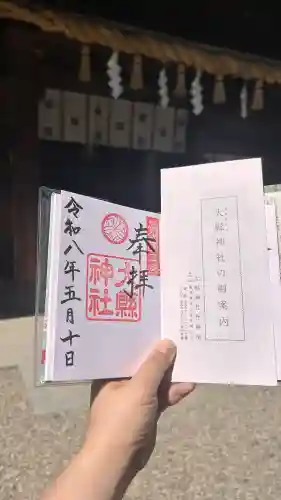 奉拝
大縣神社
令和八年五月十日
大縣神社の御案内